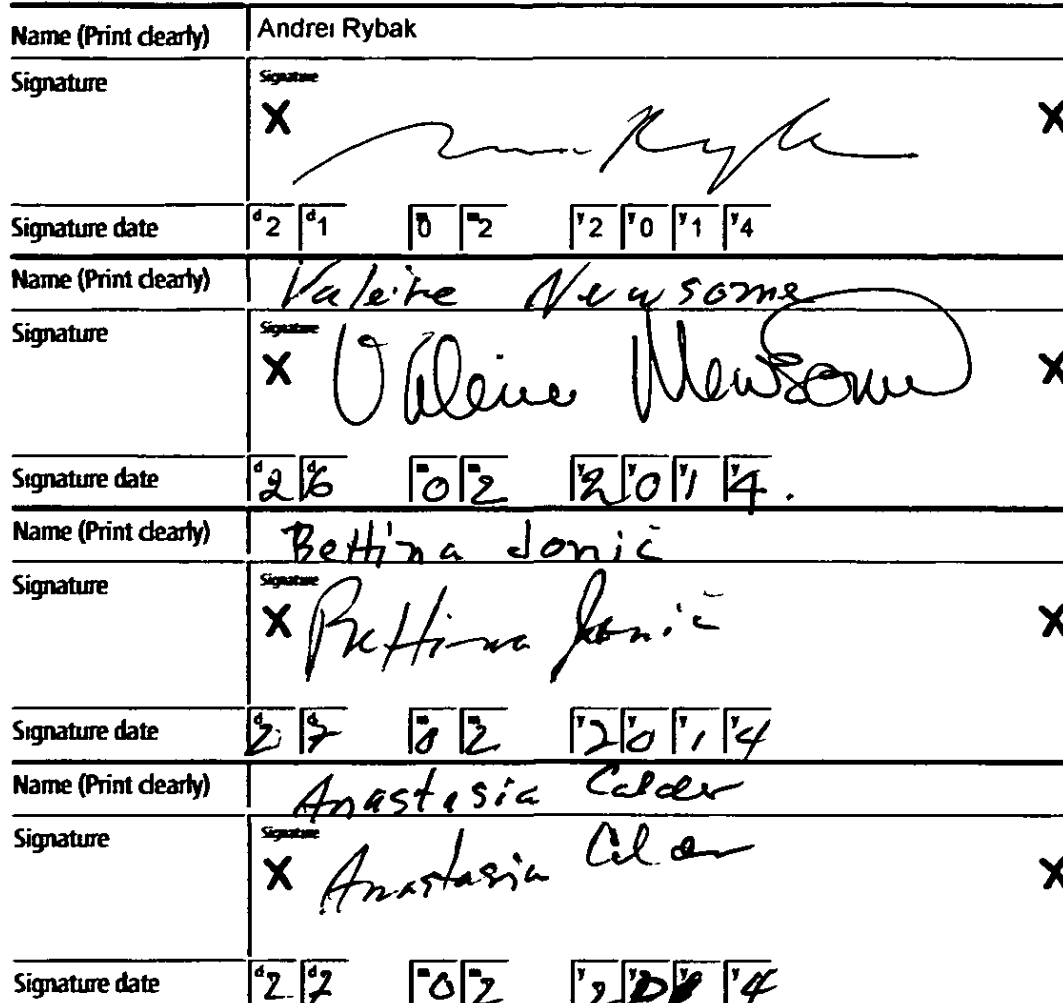 Name (Print clearly) Andrei Rybak
Signature Signature
X X
Signature date d2 d1 m0 m2 y2 y0 y1 y4
Name (Print clearly) Valerie Newsome
Signature Signature
X Valerie Newsome X
Signature date d2 d6 m0 m2 y2 y0 y1 y4.
Name (Print clearly) Bettina Jonić
Signature Signature
X Bettina Jonić X
Signature date d2 d7 m0 m2 y2 y0 y1 y4
Name (Print clearly) Anastasia Calder
Signature Signature
X Anastasia Calder X
Signature date d2 d7 m0 m2 y2 y0 y1 y4